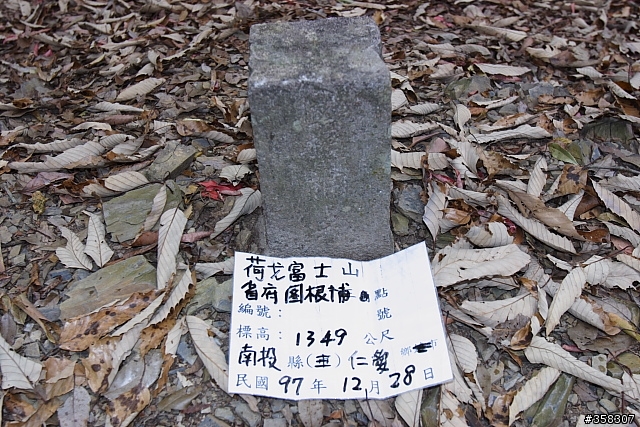 荷戈富士山
省府圖根補點
編號： 號
標高：1349公尺
南投縣(市)仁愛鄉
民國97年12月28日
#358307